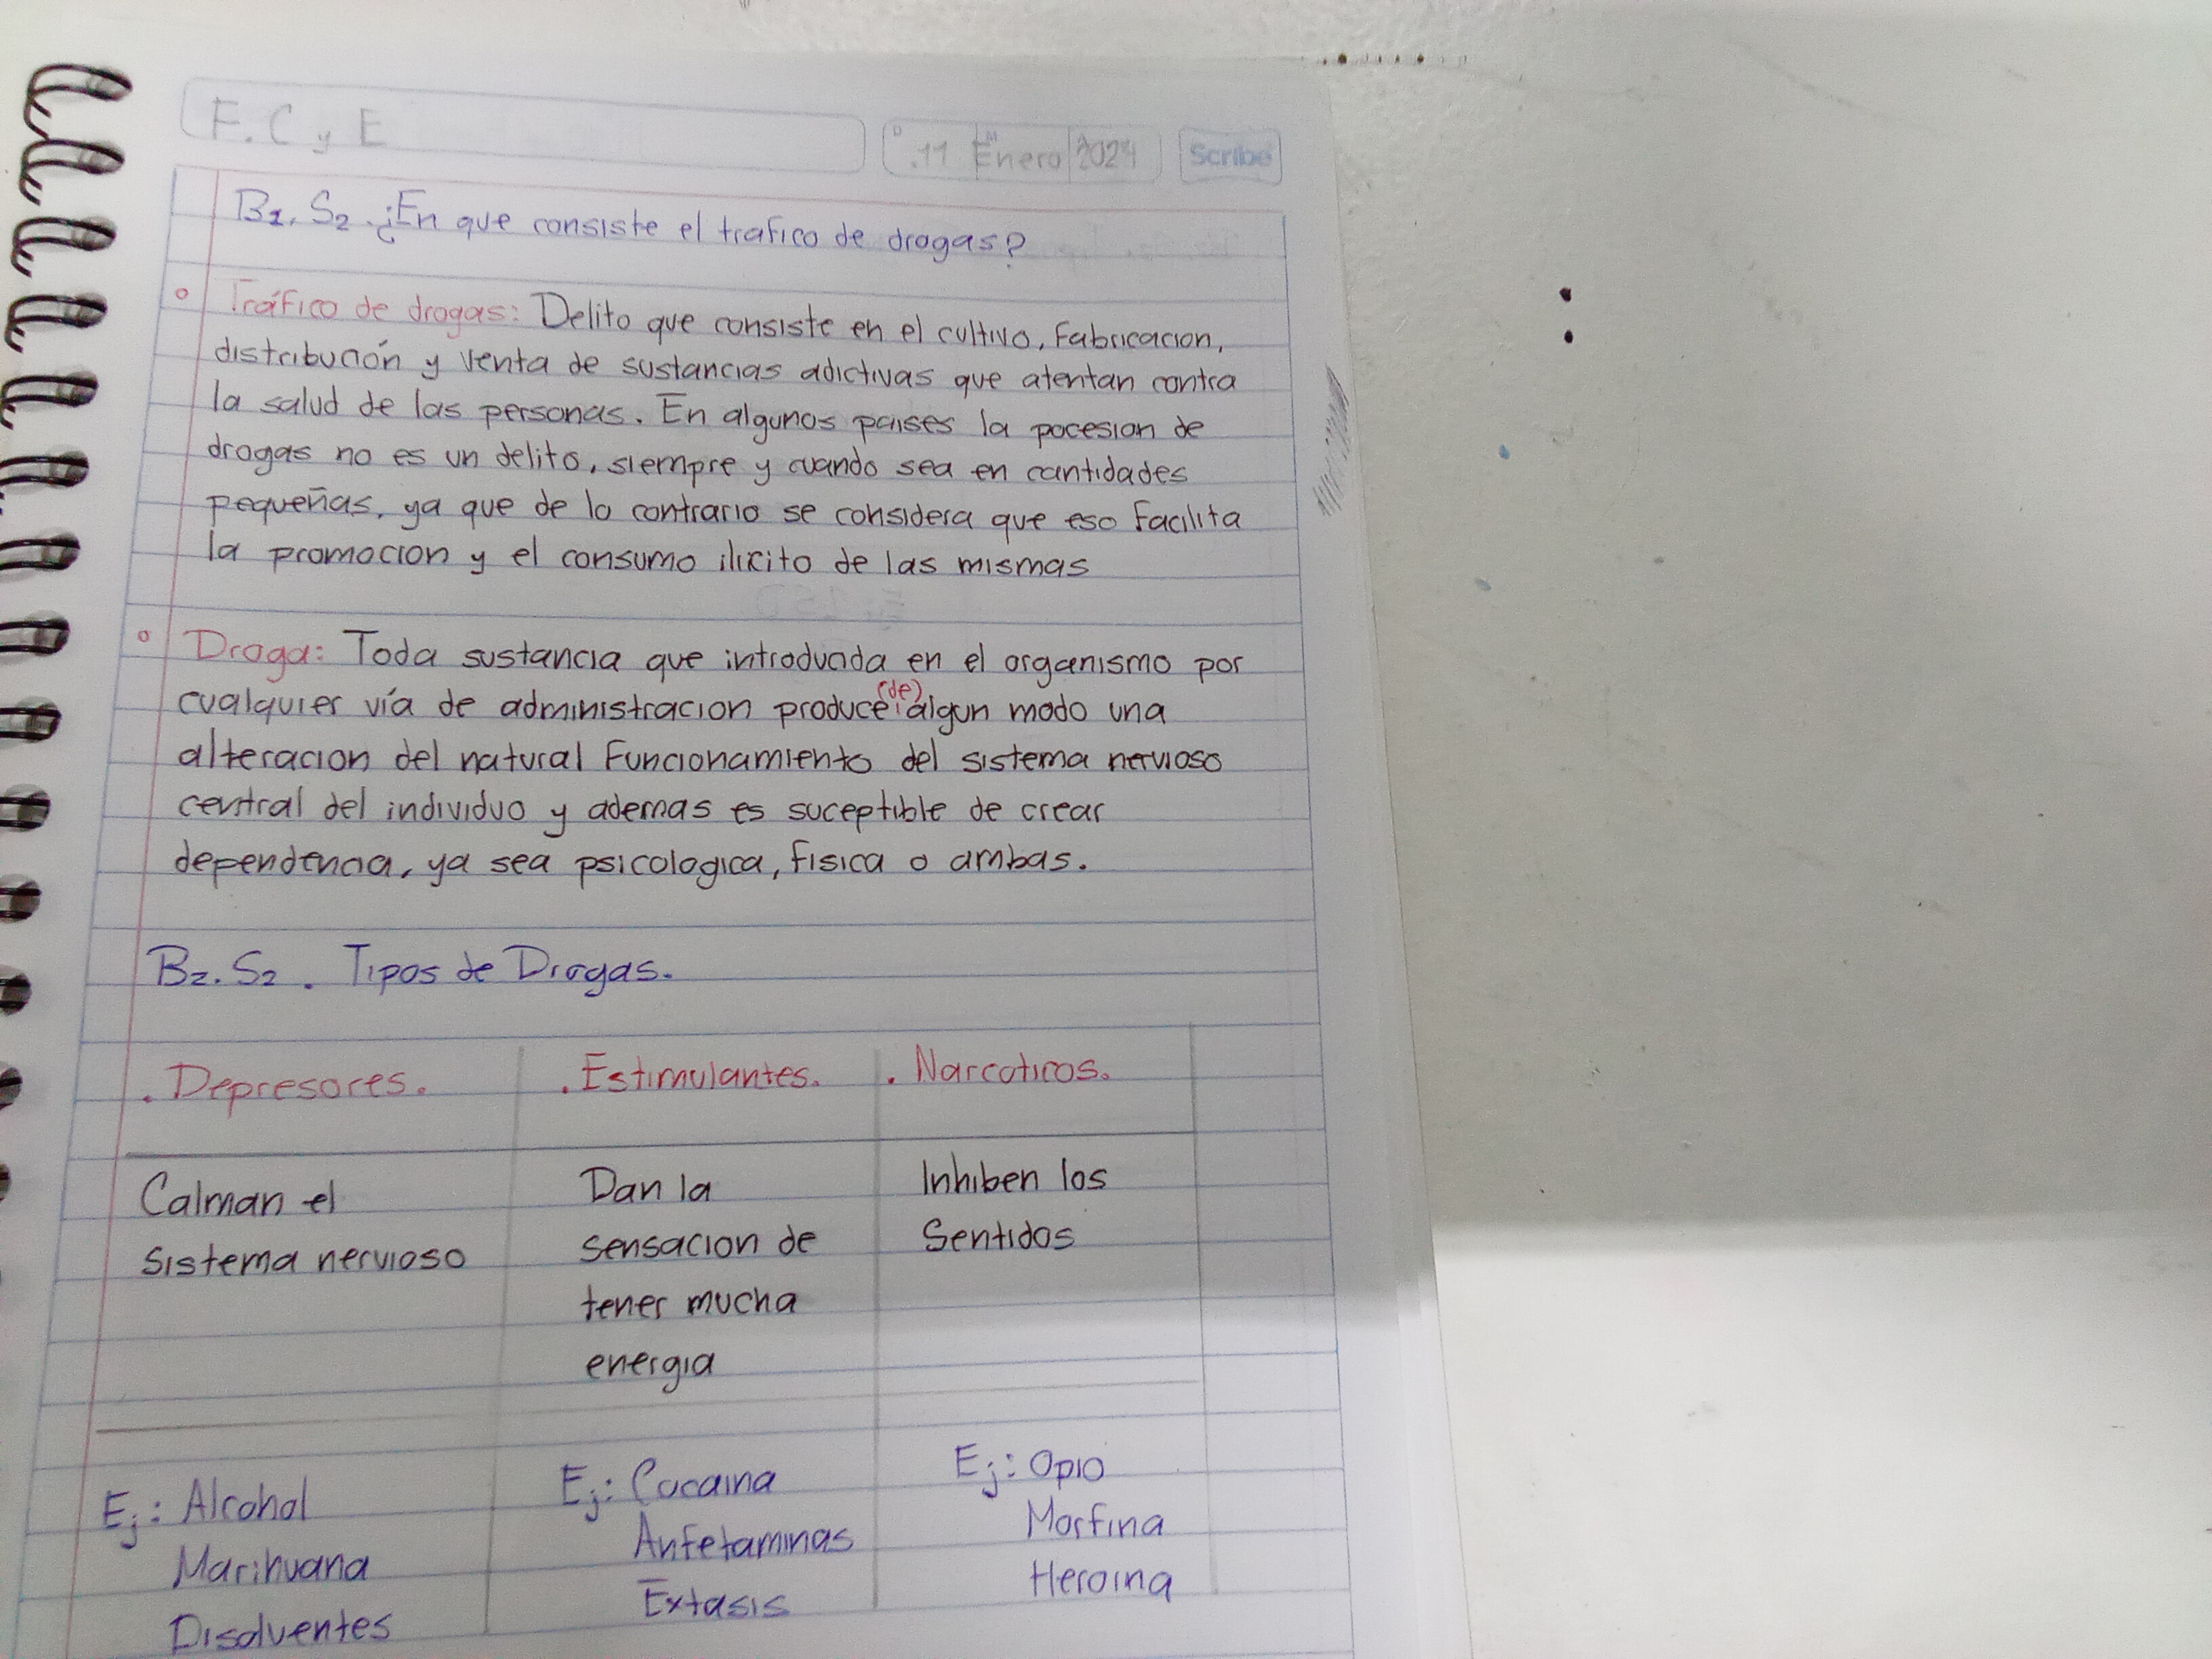 F. C y E
D .11 M Enero A 2024 Scribe
B1. S2. ¿En que consiste el trafico de drogas?
Tráfico de drogas: Delito que consiste en el cultivo, Fabricacion,
distribución y venta de sustancias adictivas que atentan contra
la salud de las personas. En algunos paises la pocesion de
drogas no es un delito, siempre y cuando sea en cantidades
pequeñas, ya que de lo contrario se considera que eso Facilita
la promocion y el consumo ilicito de las mismas
Droga: Toda sustancia que introducida en el organismo por
cualquier vía de administracion produce (de) algun modo una
alteracion del natural Funcionamiento del sistema nervioso
central del individuo y ademas es suceptible de crear
dependencia, ya sea psicologica, Fisica o ambas.
B2. S2. Tipos de Drogas.
. Depresores. . Estimulantes. . Narcoticos.
Calman el Dan la Inhiben los
Sistema nervioso sensacion de Sentidos
tener mucha
energia
Ej: Alcohol Ej: Cocaina Ej: Opio
Marihuana Anfetaminas Morfina
Disolventes Extasis Heroina